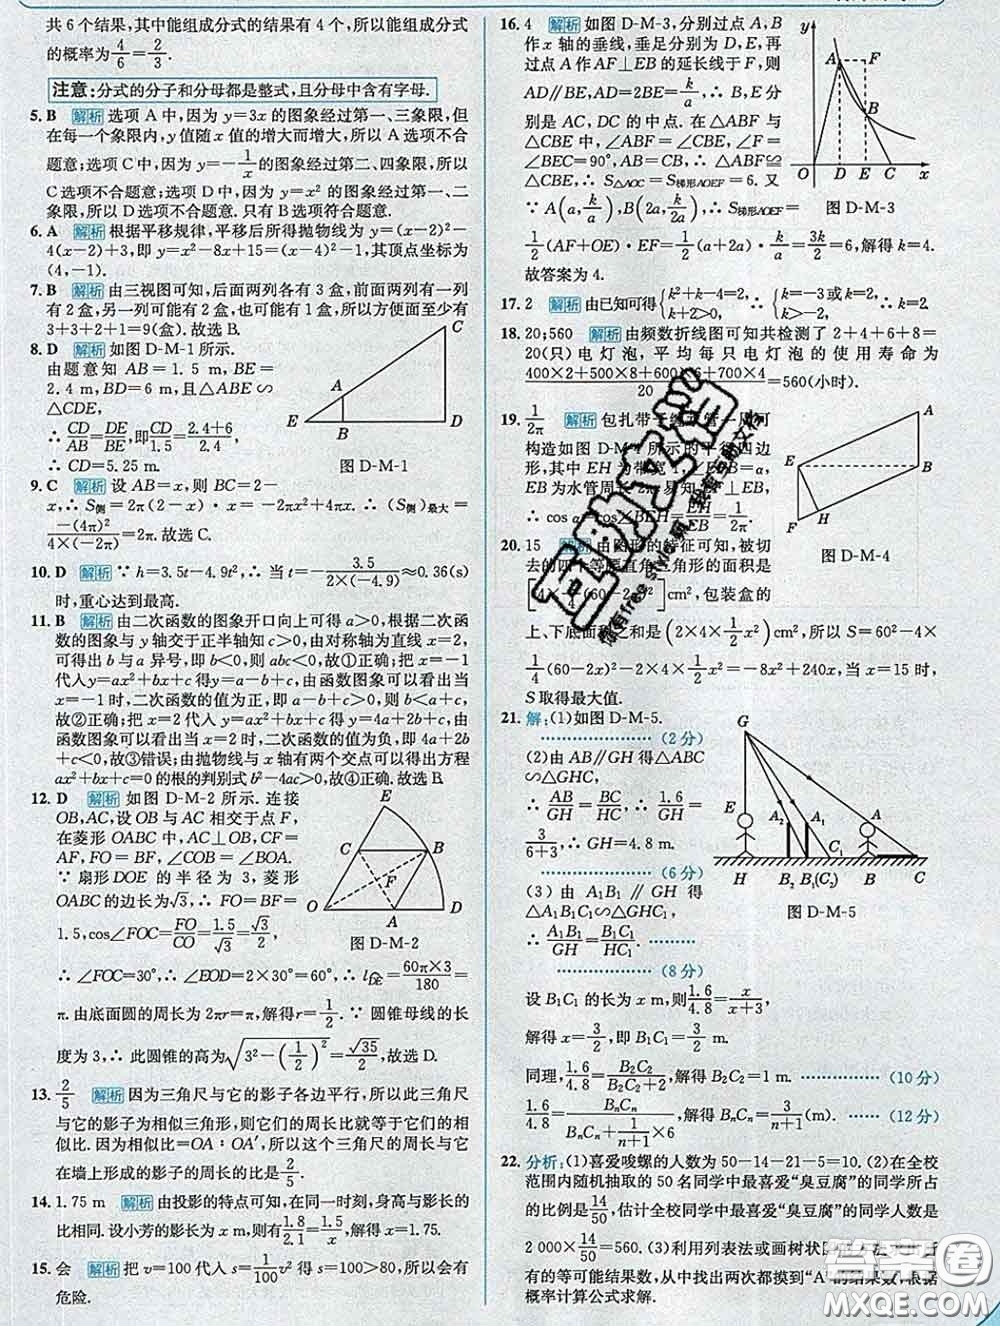 共6个结果,其中能组成分式的结果有4个,所以能组成分式
的概率为4/6=2/3.
注意:分式的分子和分母都是整式,且分母中含有字母.
5. B 解析 选项A中,因为y=3x的图象经过第一、三象限,但
在每一个象限内,y值随x值的增大而增大,所以A选项不合
题意;选项C中,因为y=-1/x的图象经过第二、四象限,所以
C选项不合题意;选项D中,因为y=x²的图象经过第一、二
象限,所以D选项不合题意.只有B选项符合题意.
6. A 解析 根据平移规律,平移后所得抛物线为y=(x-2)²-
4(x-2)+3,即y=x²-8x+15=(x-4)²-1,其顶点坐标为
(4,-1).
7. B 解析 由三视图可知,后面两列各有3盒,前面两列有一列
有2盒,另一列可能有2盒,也可能有1盒,所以方便面至少有
3+3+2+1=9(盒).故选B.
8. D 解析 如图D-M-1所示.
由题意知AB=1.5 m,BE=
2.4 m,BD=6 m,且△ABE∽
△CDE,
∴CD/AB=DE/BE,即CD/1.5=(2.4+6)/2.4,
∴CD=5.25 m.
A
B
C
D
E
图D-M-1
9. C 解析 设AB=x,则BC=2-
x,∴S侧=2π(2-x)·x=-2πx²+4πx,∴(S侧)最大=
-(4π)²/(4×(-2π))=2π.故选C.
10. D 解析 ∵h=3.5t-4.9t²,∴当t=-3.5/(2×(-4.9))≈0.36(s)
时,重心达到最高.
11. B 解析 由二次函数的图象开口向上可得a>0,根据二次函
数的图象与y轴交于正半轴知c>0,由对称轴为直线x=2,
可得出b与a异号,即b<0,则abc<0,故①正确;把x=-1
代入y=ax²+bx+c得y=a-b+c,由函数图象可以看出当
x=-1时,二次函数的值为正,即a-b+c>0,则b<a+c,
故②正确;把x=2代入y=ax²+bx+c得y=4a+2b+c,由
函数图象可以看出当x=2时,二次函数的值为负,即4a+2b
+c<0,故③错误;由抛物线与x轴有两个交点可以得出方程
ax²+bx+c=0的根的判别式b²-4ac>0,故④正确.故选B.
12. D 解析 如图D-M-2所示.连接
OB,AC,设OB与AC相交于点F,
在菱形OABC中,AC⊥BO,CF=
AF,FO=BF,∠COB=∠BOA.
∵扇形DOE的半径为3,菱形
OABC的边长为√3,∴FO=BF=
1.5,cos∠FOC=FO/CO=1.5/√3=√3/2,
E
C
B
F
O
A
D
图D-M-2
∴∠FOC=30°,∴∠EOD=2×30°=60°,∴l=60π×3/180=
π.由底面圆的周长为2πr=π,解得r=1/2,∵圆锥母线的长
度为3,∴此圆锥的高为√(3²-(1/2)²)=√35/2,故选D.
13. 2/5 解析 因为三角尺与它的影子各边平行,所以此三角尺
与它的影子为相似三角形,则它们的周长比就等于它们的相
似比.因为相似比=OA∶OA′,所以这个三角尺的周长与它
在墙上形成的影子的周长的比是2/5.
14. 1.75 m 解析 由投影的特点可知,在同一时刻,身高与影长的
比相同.设小芳的影长为x m,则有1.8/2.1=1.5/x,解得x=1.75.
15. 会 解析 把v=100代入s=1/100v²得s=100>80,所以会有
危险.
16. 4 解析 如图D-M-3,分别过点A、B
作x轴的垂线,垂足分别为D,E,再
过点A作AF⊥EB的延长线于点F,则
AD∥BE,AD=2BE=k/a,∴B,E分
别是AC,DC的中点.在△ABF与
△CBE中,∠ABF=∠CBE,∠F=
∠BEC=90°,AB=CB,∴△ABF≌
△CBE.∴S△AOC=S梯形AOEF=6.又
∵A(a,k/a),B(2a,k/2a),∴S梯形AOEF=
y
A
F
B
O
D
E
C
x
图D-M-3
1/2(AF+OE)·EF=1/2(a+2a)·k/a=3k/2=6,解得k=4.
故答案为4.
17. 2 解析 由已知可得{k²+k-4=2, k+2>0,∴{k²+k-6=0, k>-2.∴k=2.
18. 20;560 解析 由频数折线图可知共检测了2+4+6+8=
20(只)电灯泡,平均每只电灯泡的使用寿命为
(400×2+500×8+600×6+700×4)/20=560(小时).
19. 1/2π 解析 包扎带
构造如图D-M-4所示的平行四边
形,其中EH为带宽1,
EB为水管周长
A
E
B
H
F
图D-M-4
20. 15 解析 由图形的特征可知,被切
去的四个等腰直角三角形的面积是
cm²,包装盒的
上、下底面积之和是(2×4×1/2x²)cm²,所以S=60²-4×
1/4(60-2x)²-2×4×1/2x²=-8x²+240x,当x=15时,
S取得最大值.
21. 解:(1)如图D-M-5.
(2分)
(2)由AB∥GH得△ABC
∽△GHC,
∴AB/GH=BC/HC,∴1.6/GH=
3/(6+3),∴GH=4.8 m.
(6分)
(3)由A₁B₁∥GH得
△A₁B₁C₁∽△GHC₁,
∴A₁B₁/GH=B₁C₁/HC₁.
(8分)
G
E
A₂
A₁
A
H
B₂
B₁(C₂)
C₁
B
C
图D-M-5
设B₁C₁的长为x m,则1.6/4.8=x/(x+3),
解得x=3/2,即B₁C₁=3/2 m.
同理,1.6/4.8=B₂C₂/(B₂C₂+2),解得B₂C₂=1 m. (10分)
1.6/4.8=BₙCₙ/(BₙCₙ+1/(n+1)×6),解得BₙCₙ=3/(n+1)(m). (12分)
22. 分析:(1)喜爱唆螺的人数为50-14-21-5=10.(2)在全校
范围内随机抽取的50名同学中最喜爱“臭豆腐”的同学所占
的比例是14/50,估计全校同学中最喜爱“臭豆腐”的同学人数是
2 000×14/50=560.(3)利用列表法或画树状图
有的等可能结果数,从中找出两次都摸到“A”的结果数,根据
概率计算公式求解.
答案圈
MXQE.COM